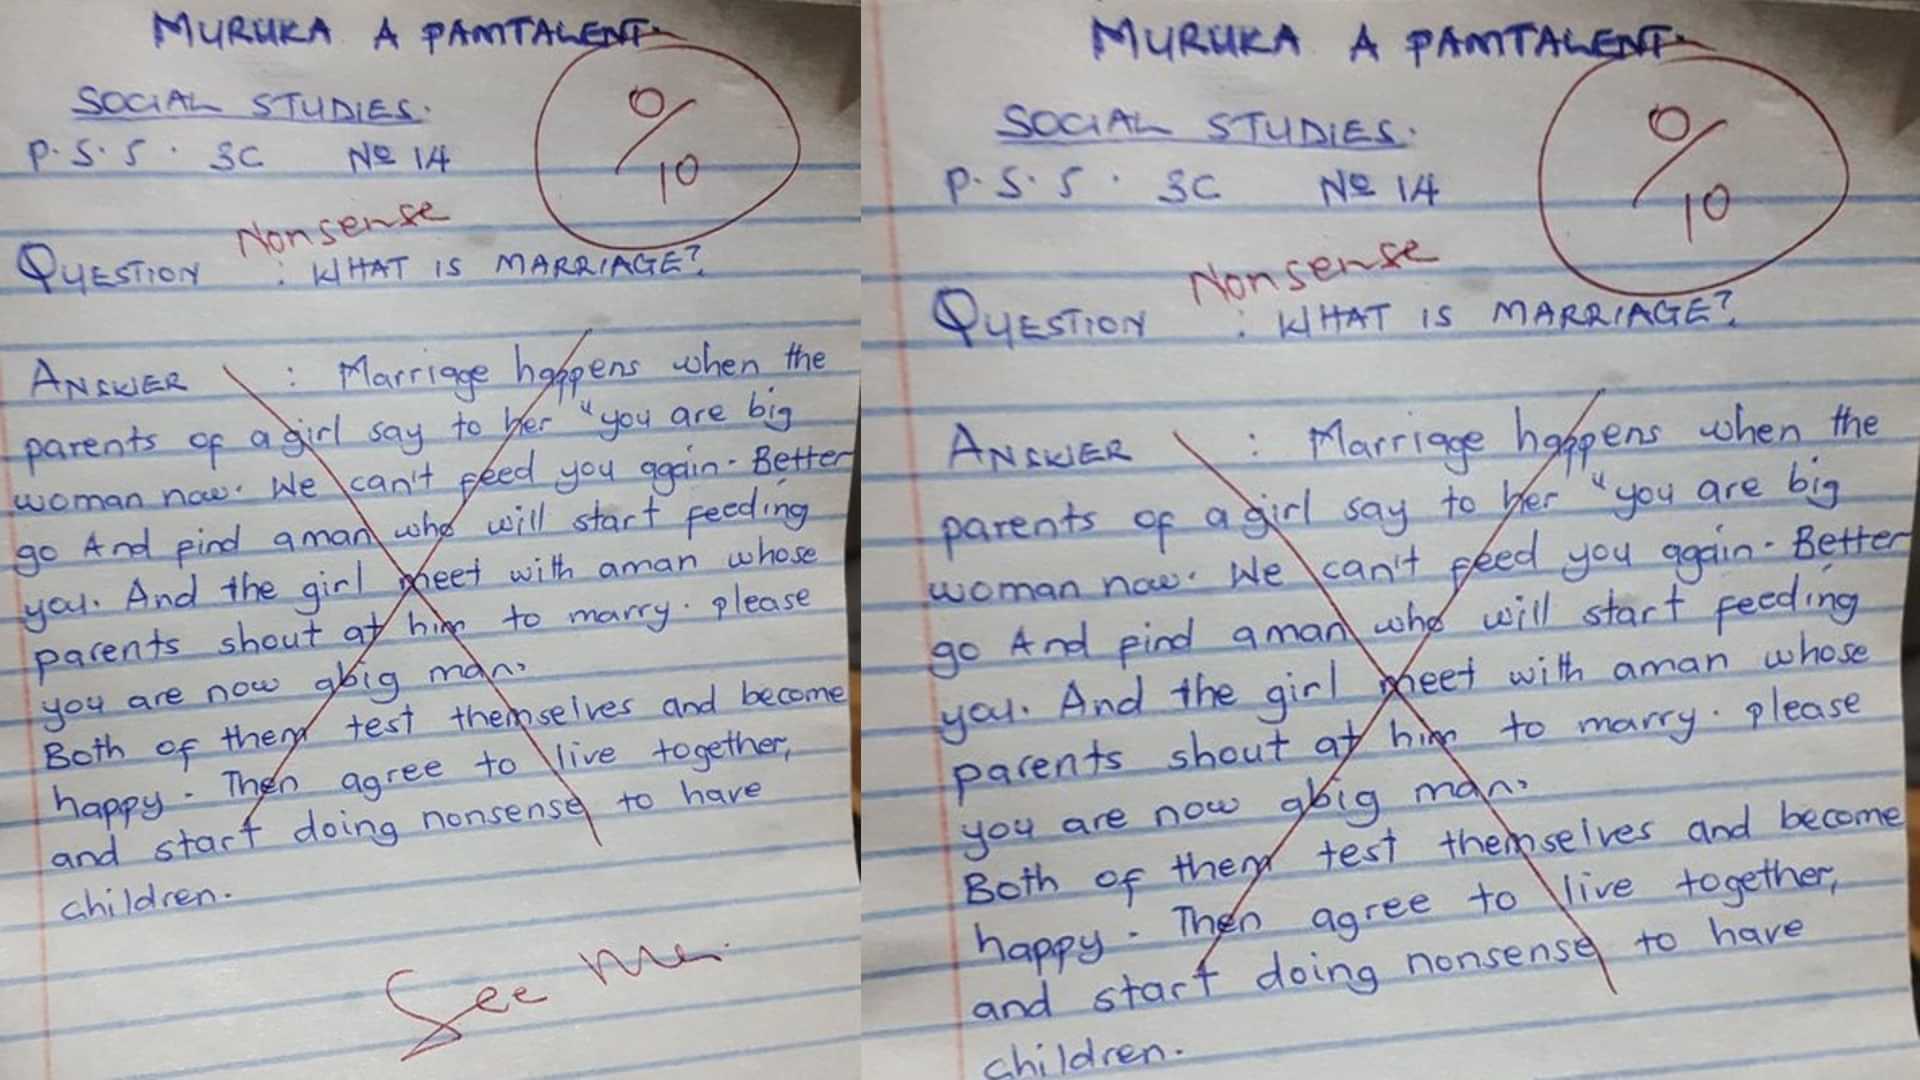 MURUKA A PAMTALENT.
SOCIAL STUDIES.
P.S.S. 3C No 14
0/10
Nonsense
QUESTION : WHAT IS MARRIAGE?
ANSWER : Marriage happens when the
parents of a girl say to her "you are big
woman now. We can't feed you again. Better
go And find a man who will start feeding
you. And the girl meet with aman whose
parents shout at him to marry. please
you are now abig man.
Both of them test themselves and become
happy. Then agree to live together,
and start doing nonsense to have
children.
See me.
MURUKA A PAMTALENT.
SOCIAL STUDIES.
P.S.S. 3C No 14
0/10
Nonsense
QUESTION : WHAT IS MARRIAGE?
ANSWER : Marriage happens when the
parents of a girl say to her "you are big
woman now. We can't feed you again. Better
go And find a man who will start feeding
you. And the girl meet with aman whose
parents shout at him to marry. please
you are now abig man.
Both of them test themselves and become
happy. Then agree to live together,
and start doing nonsense to have
children.